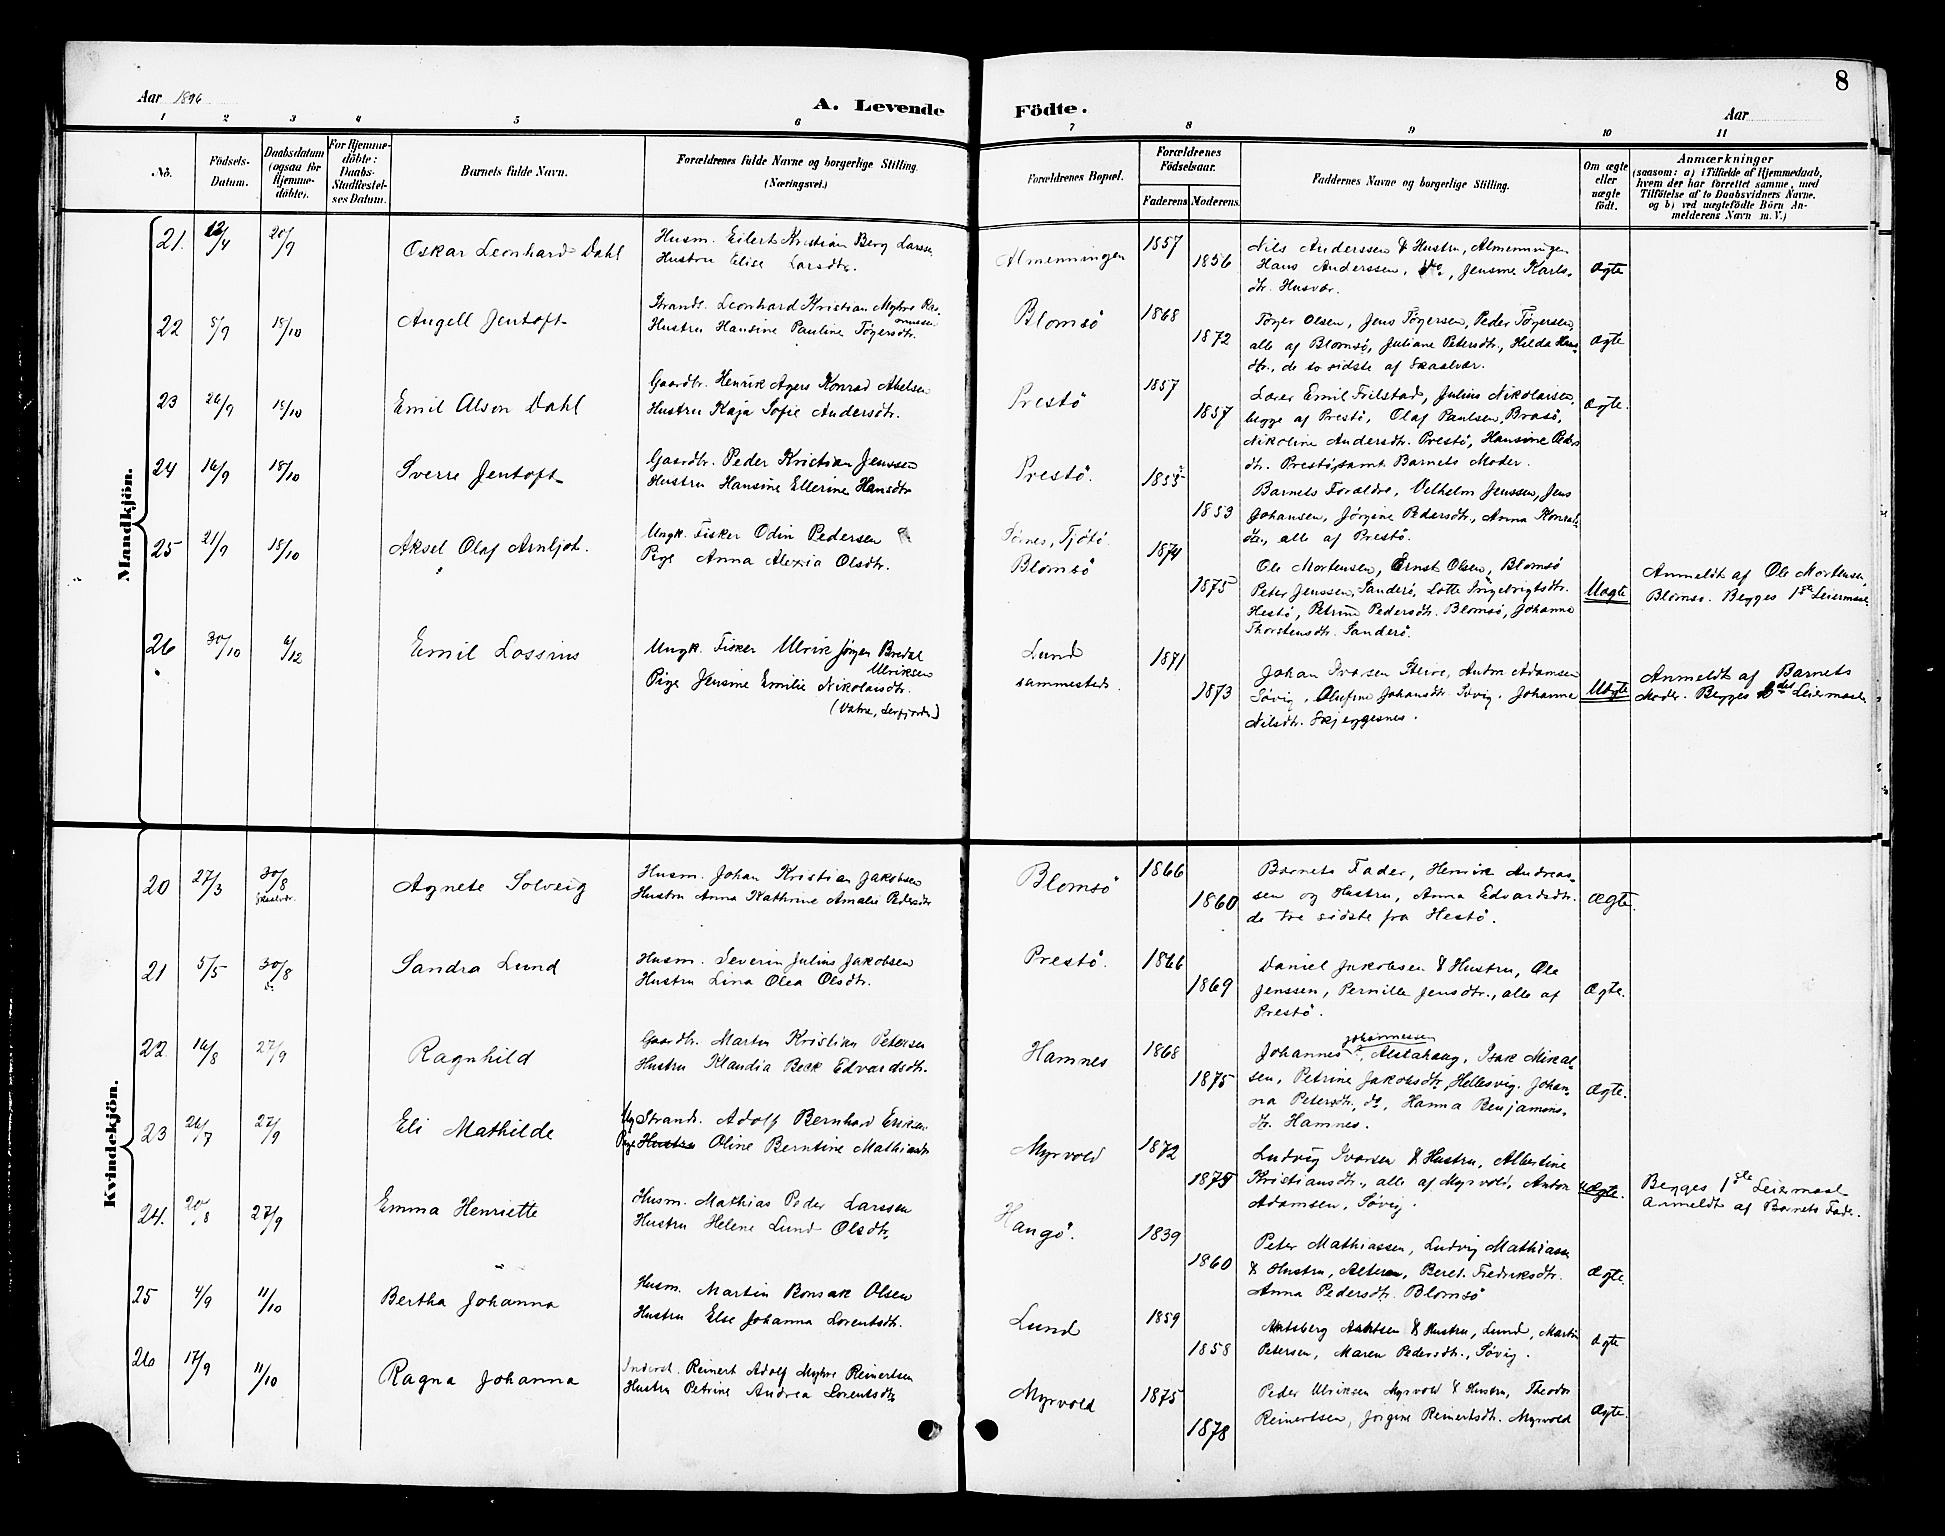 8
Aar 1896
A. Levende Födte.
Aar
1 2 3 4 5 6 7 8 9 10 11
No.
Födsels-Datum.
Daabsdatum (ogsaa för Hjemme-döbte).
For Hjemme-döbte: Daabs-Stadfæstel-ses Datum.
Barnets fulde Navn.
Forældrenes fulde Navne og borgerlige Stilling.
(Næringsvei.)
Forældrenes Bopæl.
Forældrenes Födselsaar.
Faderens Moderens
Faddernes Navne og borgerlige Stilling.
Om ægte eller uægte födt.
Anmærkninger
(saasom: a) i Tilfælde af Hjemmedaab,
hvem der har forrettet samme, med
Tilföielse af to Daabsvidners Navne.
og b) ved uægtefödte Börn An-
melderens Navn m. V.)
Mandkjön.
21. 12/4 20/9 Oskar Leonhard Dahl
Husm. Eilert Kristian Berg Larsen
Hustru Elise Larsdtr.
Almenningen 1857 1856
Nils Anderssen & Hustru, Almenningen
Hans Anderssen, do, Jensine Karls-
dtr. Husvær.
Ægte
22 5/9 18/10 Angell Jentoft
Strands. Leonhard Kristian Myhre Ras-
mussen
Hustru Hansine Pauline Tögersdtr.
Blomsö 1868 1872
Töger Olsen, Jens Tögersen, Peder Tögersen,
alle af Blomsö, Juliane Petersdtr., Hilda Hans-
dtr., de to sidste af Skaalvær.
Ægte
23 26/9 18/10 Emil Alson Dahl
Gaardbr. Henrik Agers Konrad Abelsen
Hustru Kaja Sofie Andersdtr.
Prestö 1857 1857
Lærer Emil Frilstad, Julius Nikolaisen,
begge af Prestö, Olaf Paulsen, Brasö,
Nikoline Andersdtr. Prestö, Hansine Peders
dtr. Prestö, samt Barnets Moder.
Ægte.
24 16/9 18/10 Sverre Jentoft
Gaardbr. Peder Kristian Jenssen
Hustru Hansine Ellerine Hansdtr
Prestö. 1855 1853
Barnets Forældre, Vilhelm Jenssen, Jens
Johansen, Jörgine Pedersdtr., Anna Konrads-
dtr., alle af Prestö.
25 21/9 18/10 Aksel Olaf Arnljot.
Ungk. Fisker Odin Pedersen
Pige Anna Alexia Olsdtr.
Tjötö.
Blomsö 1874 1875
Ole Mortensen, Ernst Olsen, Blomsö
Peter Jenssen, Sanderö, Lotte Ingebrigtsdtr.
Hestö, Petrine Pedersdtr. Blomsö, Johanna
Thorstensdtr. Sanderö.
Uægte
Anmeldt af Ole Mortensen,
Blomsö. Begges 1ste Leiermaal.
26 30/10 6/12 Emil Lossius
Ungk. Fisker Ulrik Jörgen Bredal
Ulriksen
Pige Jensine Emilie Nikolaisdtr.
Lund
sammesteds. 1871 1873
Johan Ivarsen Adamsen
Søvig, Olufine Johansdtr. Søvig. Johanna
Nilsdtr. Skjeggesnes.
Uægte
Anmeldt af Barnets
Moder. Begges 2det Leiermaal
Kvindekjön.
20 27/3 30/8 Skaalvær. Agnete Solveig
Husm. Johan Kristian Jakobsen
Hustru Anna Kathrine Amalie Pedersdtr
Blomsö 1866 1860
Barnets Fader, Henrik Andreas-
sen og Hustru, Anna Edvardsdtr.
de tre sidste fra Hestö.
Ægte.
21 5/5 30/8 Sandra Lund
Husm. Severin Julius Jakobsen
Hustru Lina Olea Olsdtr.
Prestö. 1866 1869
Daniel Jakobsen & Hustru, Ole
Jenssen, Pernille Jensdtr., alle af
Prestö.
Ægte.
22. 16/8 27/9 Ragnhild
Gaardbr. Martin Kristian Petersen
Hustru Klaudia Beck Edvardsdtr.
Hamnes 1868 1875
Johannessen
Johannes, Alstahaug, Isak Mikal-
sen, Petrine Jakobsdtr, Hellesvig. Johan-
na Petersdtr., do, Hanna Benjamins-
dtr. Hamnes.
Ægte.
23 26/7 27/9 Eli Mathilde
Ug Strands. Adolf Bernhard Eriksen
Pige Hustru Oline Berntine Mathiasdtr
Myrvold 1872 1875
Ludvig Ivarsen & Hustru, Albertine
Kristiansdtr., alle af Myrvold, Anton
Adamsen, Søvig.
Uægte.
Begges 1ste Leiermaal
Anmeldt af Barnets Fader.
24. 20/8 27/9 Emma Henriette
Husm. Mathias Peder Larssen
Hustru Helene Lund Olsdtr.
Hangö. 1839 1860
Peter Mathiassen, Ludvig Mathiassen
& Hustru, Alteren, Beret Fredriksdtr.
Anna Pedersdtr. Blomsö
Ægte.
25 4/9 11/10 Bertha Johanna
Husm. Martin Bonsak Olsen
Hustru Else Johanna Lorentsdtr.
Lund 1859 1858
& Hustru, Lund, Martin
Petersen, Maren Pedersdtr., Søvig.
Ægte
26 17/9 11/10 Ragna Johanna
Inderst. Reinert Adolf Myhre Reinertsen
Hustru Petrine Andrea Lorentsdtr
Myrvold 1875 1878
Peder Ulriksen Myrvold & Hustru, Theodor
Reinertsen, Jörgine Reinertsdtr. Myrvold
Ægte.